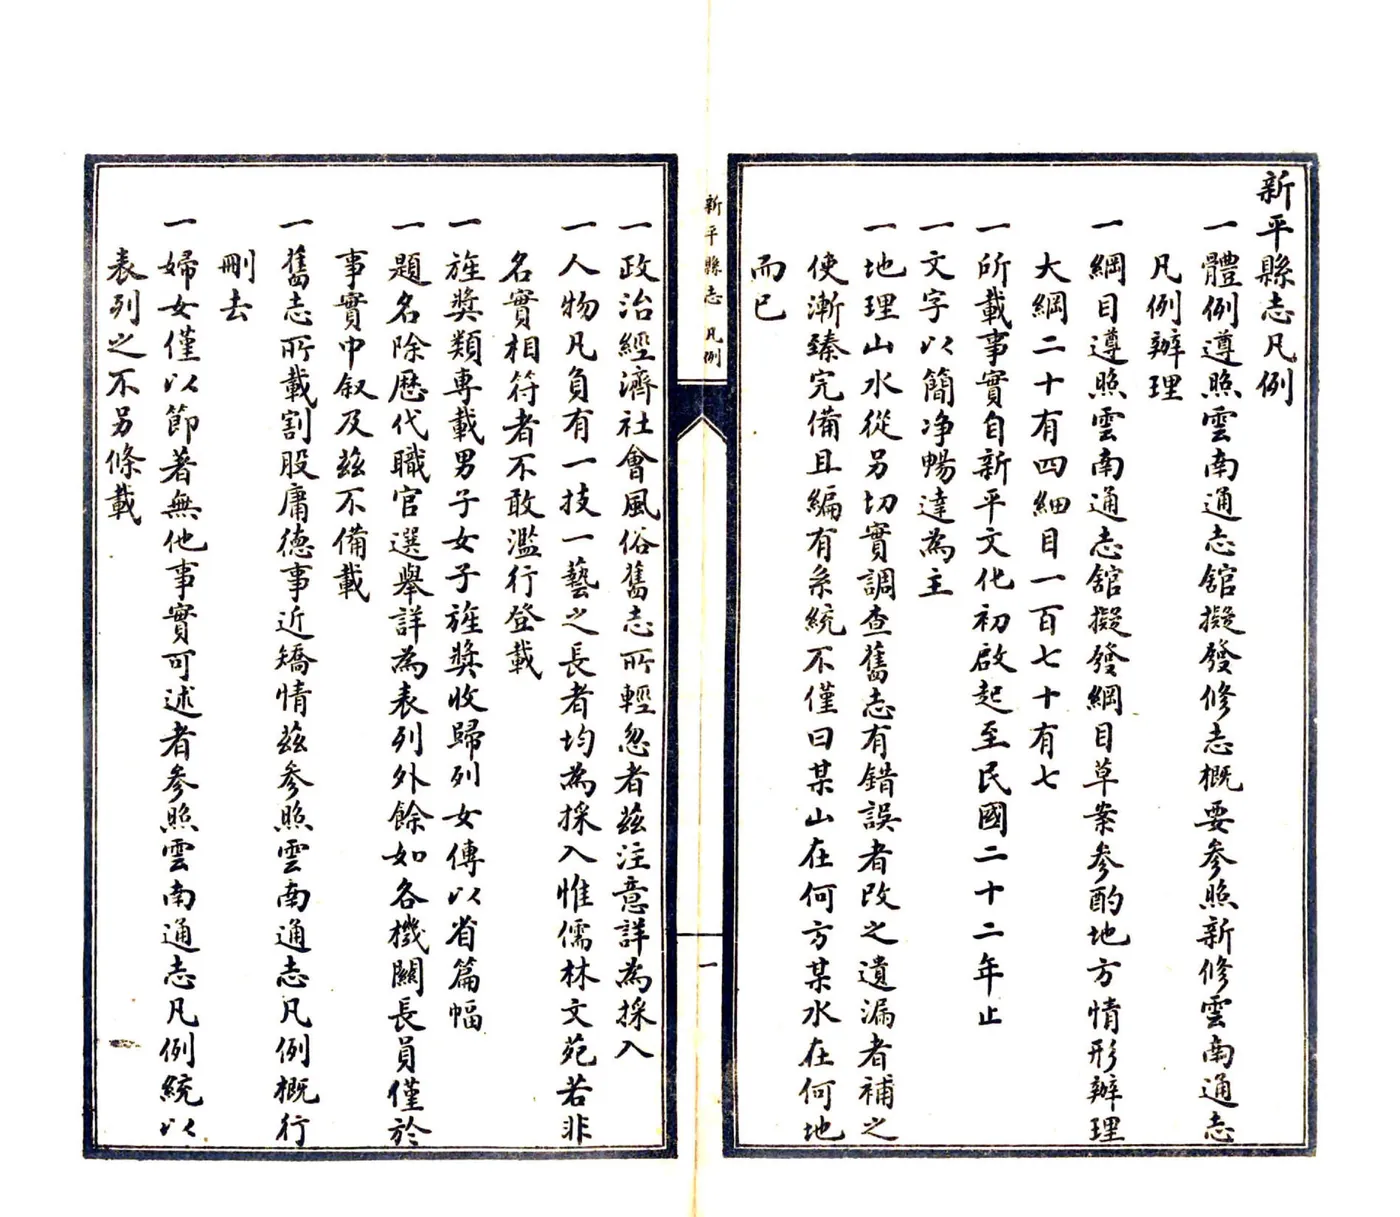 新平縣志凡例
一體例遵照雲南通志舘擬發修志概要參照新修雲南通志
凡例辦理
一綱目遵照雲南通志舘擬發綱目草案參酌地方情形辦理
大綱二十有四細目一百七十有七
一所載事實自新平文化初啟起至民國二十二年止
一文字以簡净暢達為主
一地理山水從另切實調查舊志有錯誤者改之遺漏者補之
使漸臻完備且編有系統不僅曰某山在何方某水在何地
而已
新平縣志 凡例
一
一政治經濟社會風俗舊志所輕忽者茲注意詳為採入
一人物凡負有一技一藝之長者均為採入惟儒林文苑若非
名實相符者不敢濫行登載
一旌獎類專載男子女子旌獎收歸列女傳以省篇幅
一題名除歷代職官選舉詳為表列外餘如各機關長員僅於
事實中叙及茲不備載
一舊志所載割股庸德事近矯情茲參照雲南通志凡例概行
刪去
一婦女僅以節著無他事實可述者參照雲南通志凡例統以
表列之不另條載